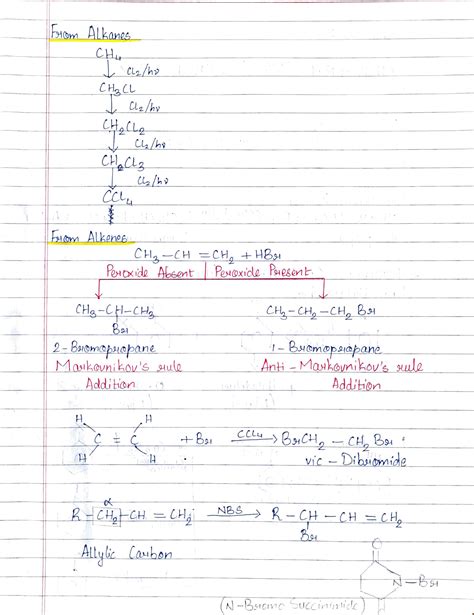 From Alkanes
CH4
Cl2/hν
CH3Cl
Cl2/hν
CH2Cl2
Cl2/hν
CH2Cl3
Cl2/hν
CCl4
From Alkenes
CH3 – CH = CH2 + HBr
Peroxide Absent | Peroxide Present
CH3 – CH – CH3 CH3 – CH2 – CH2 Br
Br
2 – Bromopropane 1 – Bromopropane
Markovnikov's rule Anti – Markovnikov's rule
Addition Addition
H H
C = C + Br CCl4 BrCH2 – CH2 Br
H H vic – Dibromide
α
R – [CH2] – CH = CH2 NBS R – CH – CH = CH2
Br
Allylic Carbon
O
N – Br
(N-Bromo Succinimide)